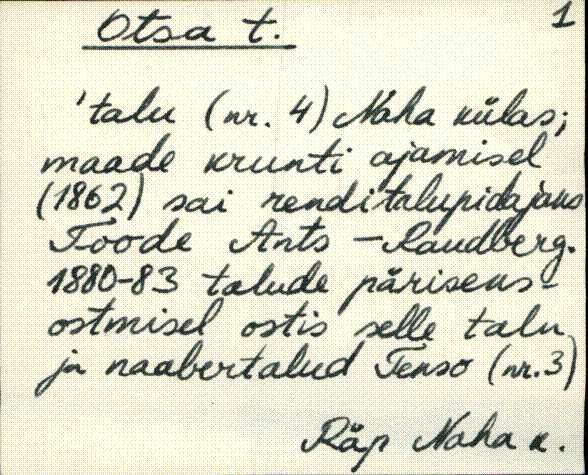 Otsa t. 1
'talu (nr. 4) Naha külas;
maade krunti ajamisel
(1862) sai renditalupidajaks
Toode Ants – Raudberg.
1880-83 talude päriseks-
ostmisel ostis selle talu
ja naabertalud Tenso (nr. 3)
Räp Naha k.